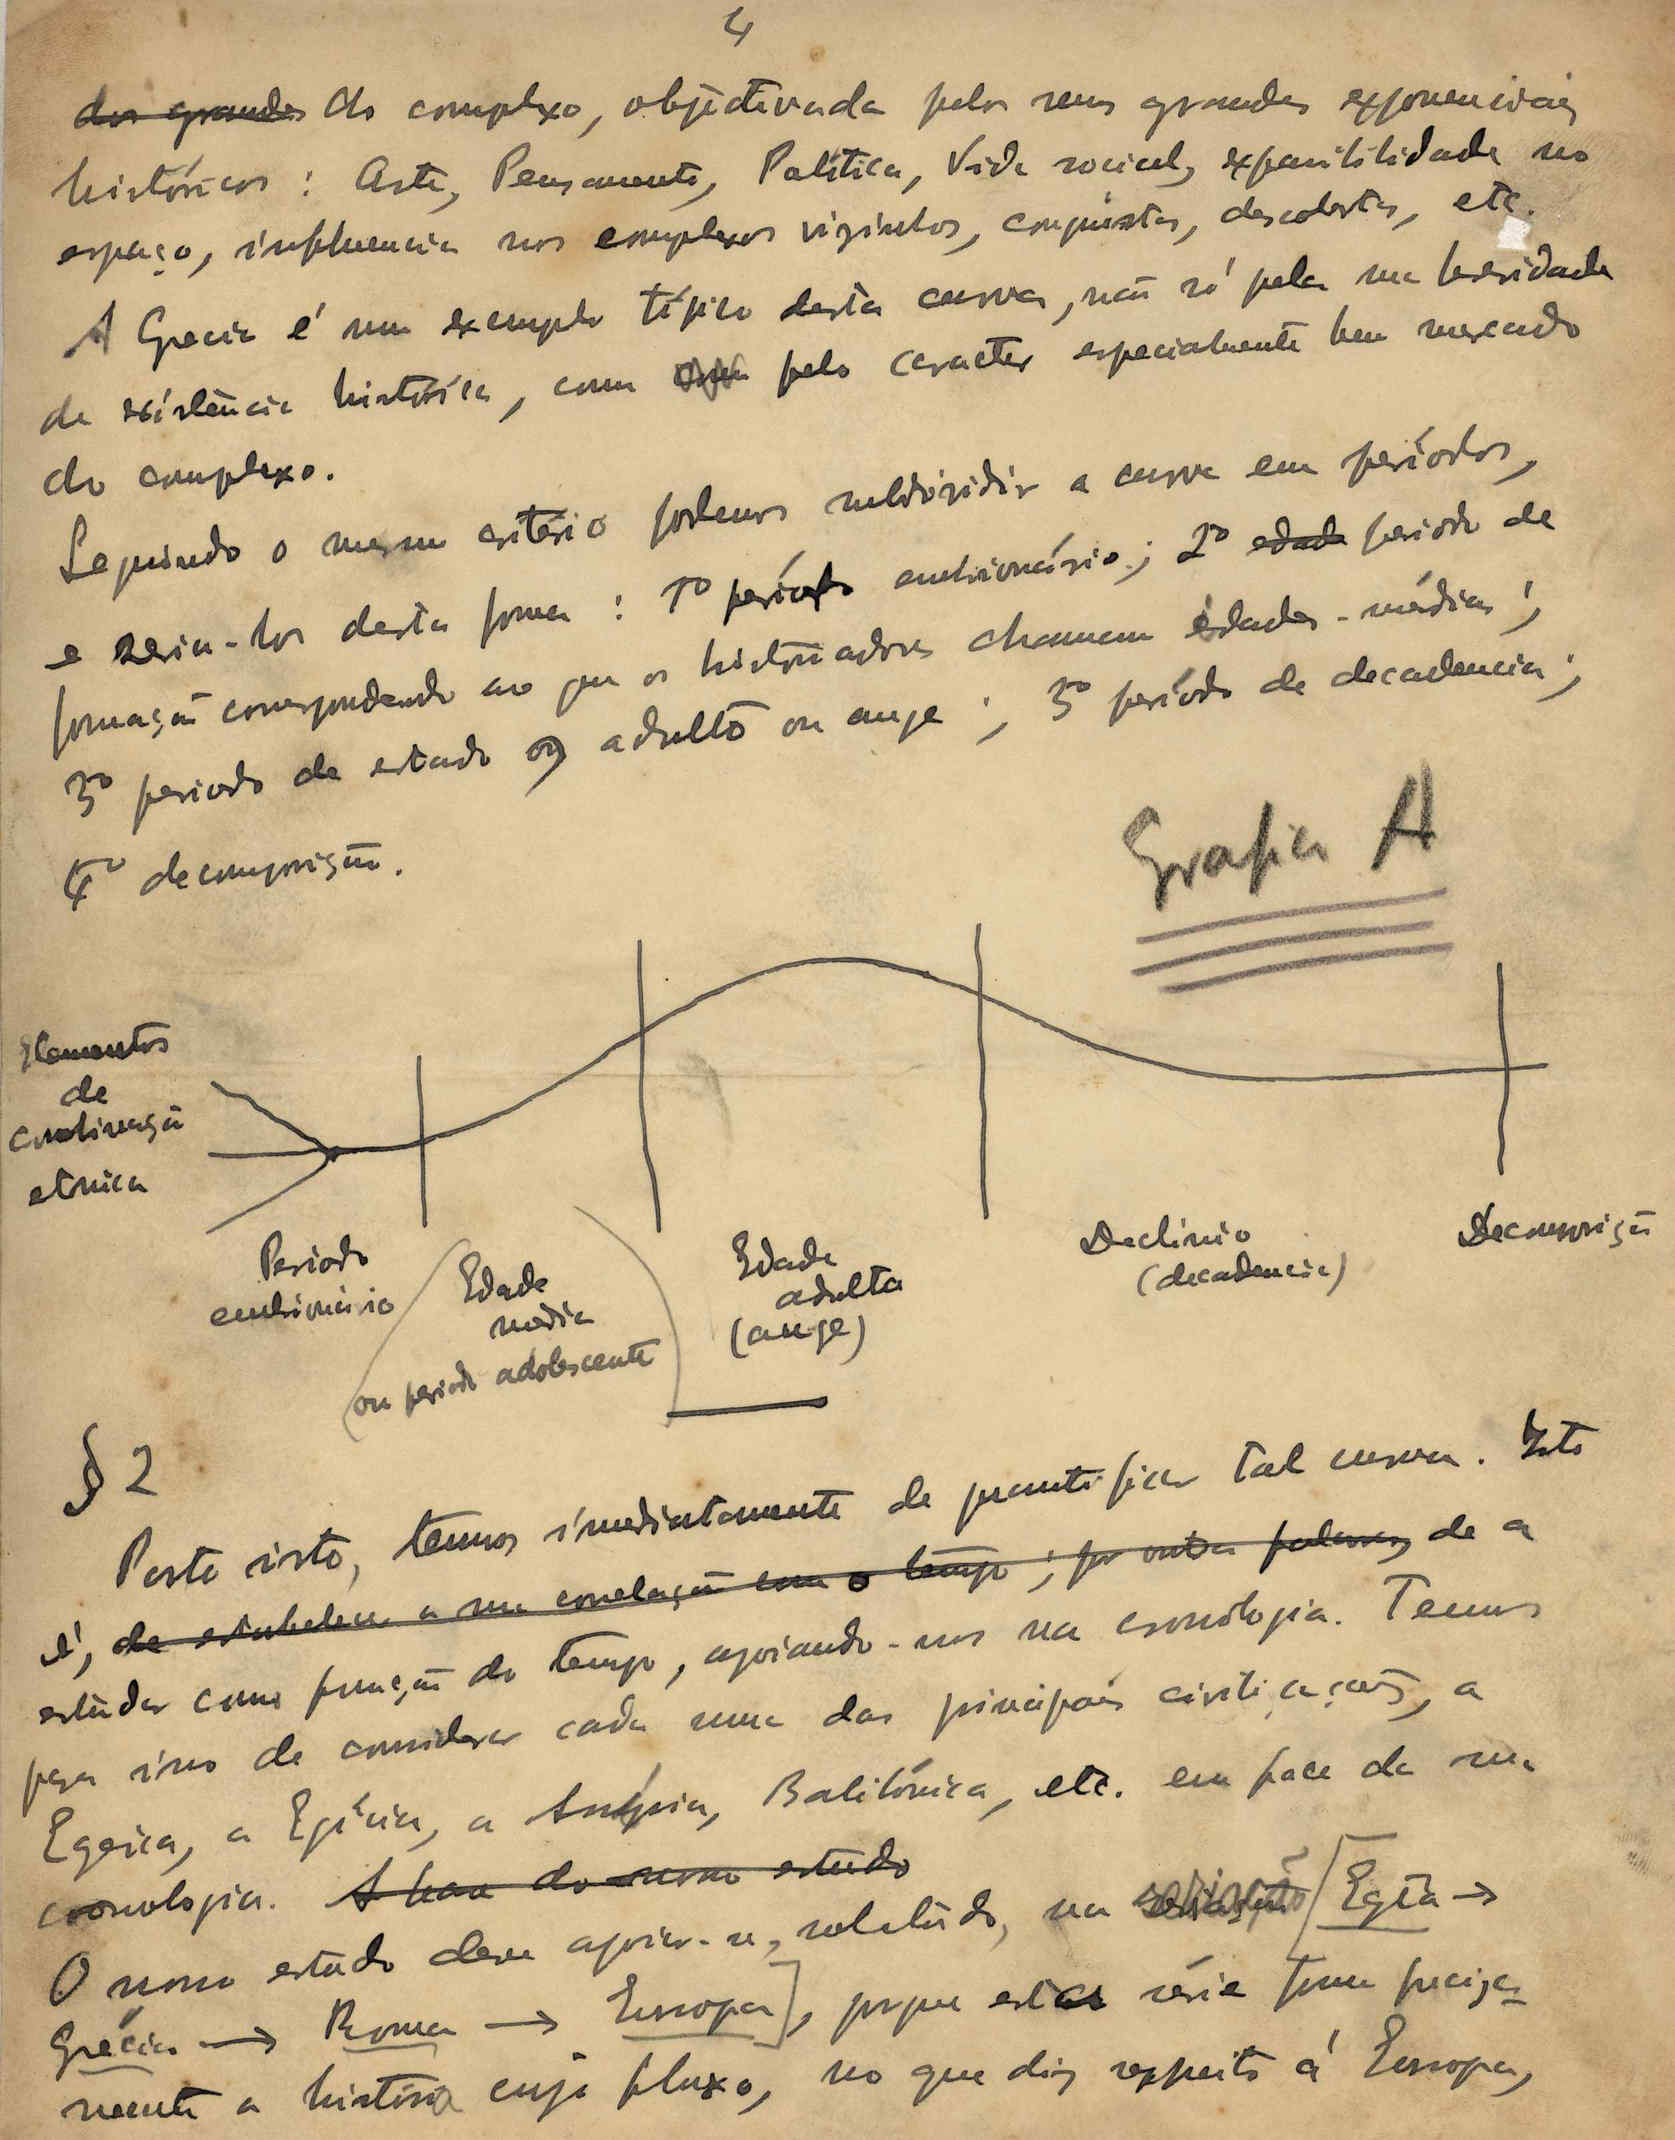 4
dos grandes do complexo, objectivada pelos seus grandes exponenciais
históricos: Arte, Pensamento, Politica, Vida social, expansibilidade no
espaço, influencia nos complexos vizinhos, conquistas, descobertas, etc.
A Grecia é um exemplo típico desta curva, não só pela sua brevidade
de existência histórica, como pelo caracter especialmente bem marcado
do complexo.
Seguindo o mesmo critério podemos subdividir a curva em períodos,
e seria-los desta forma: 1º período embrionário; 2º edade periodo de
formação correspondendo ao que os historiadores chamam edades-médias;
3º periodo de estado ou adulto ou auge; 3º período de decadencia;
4º decomposição.
Grafica A
Elementos
de
combinação
etnica
Periodo
embrionário
Edade
media
(ou periodo adolescente)
Edade
adulta
(auge)
Declinio
(decadencia)
Decomposição
§ 2
Posto isto, temos imediatamente de quantificar tal curva. Isto
é, de estabelecer a sua correlação com o tempo; por outras palavras de a
estudar como função do tempo, apoiando-nos na cronologia. Temos
para isso de considerar cada uma das principais civilizações, a
Egeica, a Egícia, a Babilónica, etc. em face da sua
cronologia. A base do nosso estudo
O nosso estudo deve apoiar-se, sobretudo, na seriação [Egito →
Grécia → Roma → Europa], porque esta série forma precisa-
mente a história cujo fluxo, no que diz respeito á Europa,